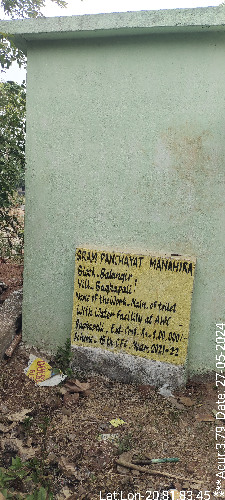 GRAM PANCHAYAT MANAHIRA
Block - Balangir
Vill - Bagjapali
Name of the Work - Main. of toilet
With Water Facility at AWC
Est. Cost. Rs - 1,00,000/-
Scheme - 15th CFC - Year - 2021-22
***Acur:3.79 Date: 27-05-2024